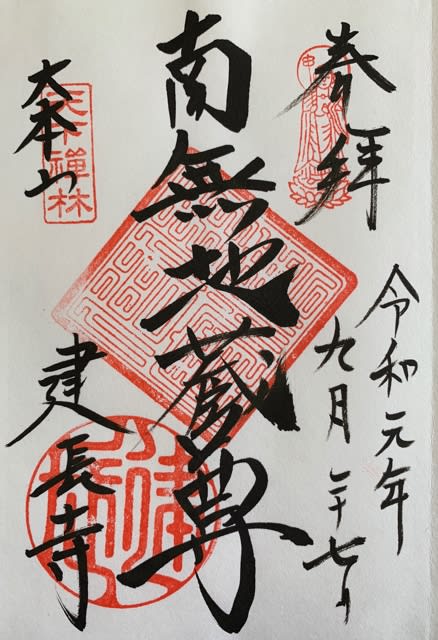 奉拝
令和元年
九月二十七日
南無地蔵尊
大本山
建長寺
天下禅林